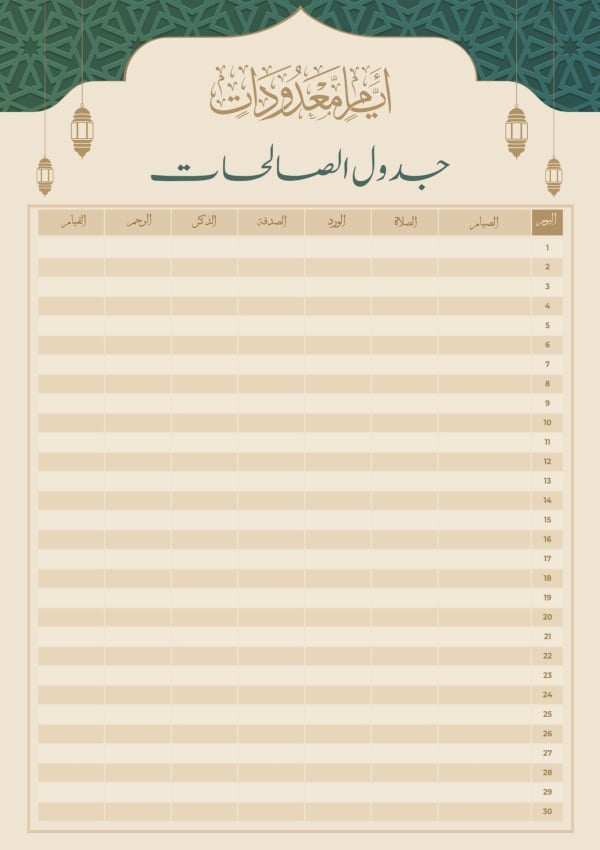 أَيَّامٍ مَّعْدُودَاتٍ
جدول الصالحات
اليوم الصيام الصلاة الورد الصدقة الذكر الرحم القيام
1
2
3
4
5
6
7
8
9
10
11
12
13
14
15
16
17
18
19
20
21
22
23
24
25
26
27
28
29
30